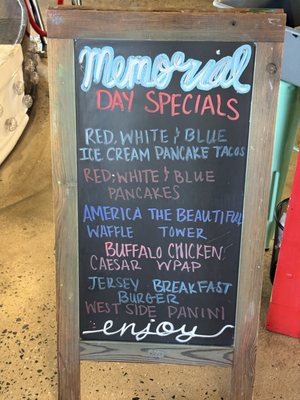 Memorial
DAY SPECIALS
RED, WHITE & BLUE
ICE CREAM PANCAKE TACOS
RED, WHITE & BLUE
PANCAKES
AMERICA THE BEAUTIFUL
WAFFLE TOWER
BUFFALO CHICKEN
CAESAR WPAP
JERSEY BREAKFAST
BURGER
WEST SIDE PANINI
enjoy